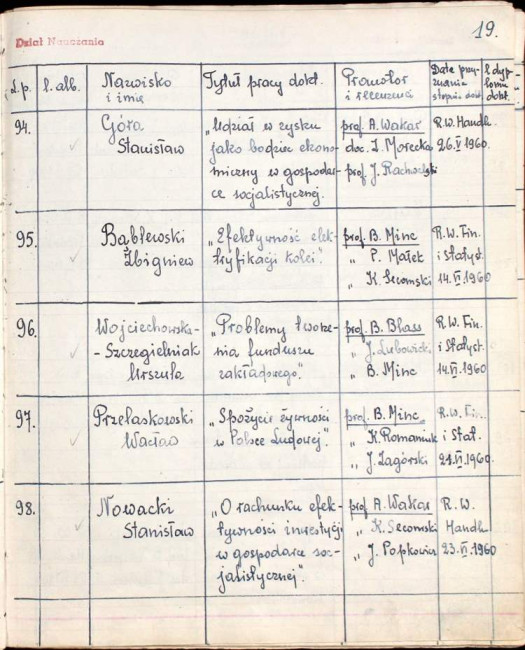 19.
Dział Nauczania
L.p.
l. alb.
Nazwisko
i imię
Tytuł pracy dokt.
Promotor
i recenzenci
Data przy-
znania
stopnia dokt.
l. dyp-
lomu
dokt.
94.
Góra
Stanisław
„Udział w zysku
jako bodziec ekono-
miczny w gospodar-
ce socjalistycznej.
prof. A. Wakar
doc. J. Morecka
prof. J. Rachwalski
R.W. Handl.
26.V.1960.
95.
Bąblewski
Zbigniew
„Efektywność elek-
tryfikacji kolei".
prof. B. Minc
" P. Małek
" K. Secomski
R.W. Fin.
i Statyst.
14.VI.1960
96.
Wojciechowska-
-Szczegielniak
Urszula
„Problemy tworze-
nia funduszu
zakładowego."
prof. B. Blass
" J. Lubowicki
" B. Minc
R.W. Fin.
i Statyst.
14.VI.1960
97.
Przelaskowski
Wacław
„Spożycie żywności
w Polsce Ludowej".
prof. B. Minc
" K. Romaniuk
" J. Zagórski
R.W. Fin.
i Stat.
21.VI.1960.
98.
Nowacki
Stanisław
„O rachunku efek-
tywności inwestycji
w gospodarce soc-
jalistycznej".
prof. A. Wakar
" K. Secomski
" J. Popkiewicz
R.W.
Handlu
23.VI.1960